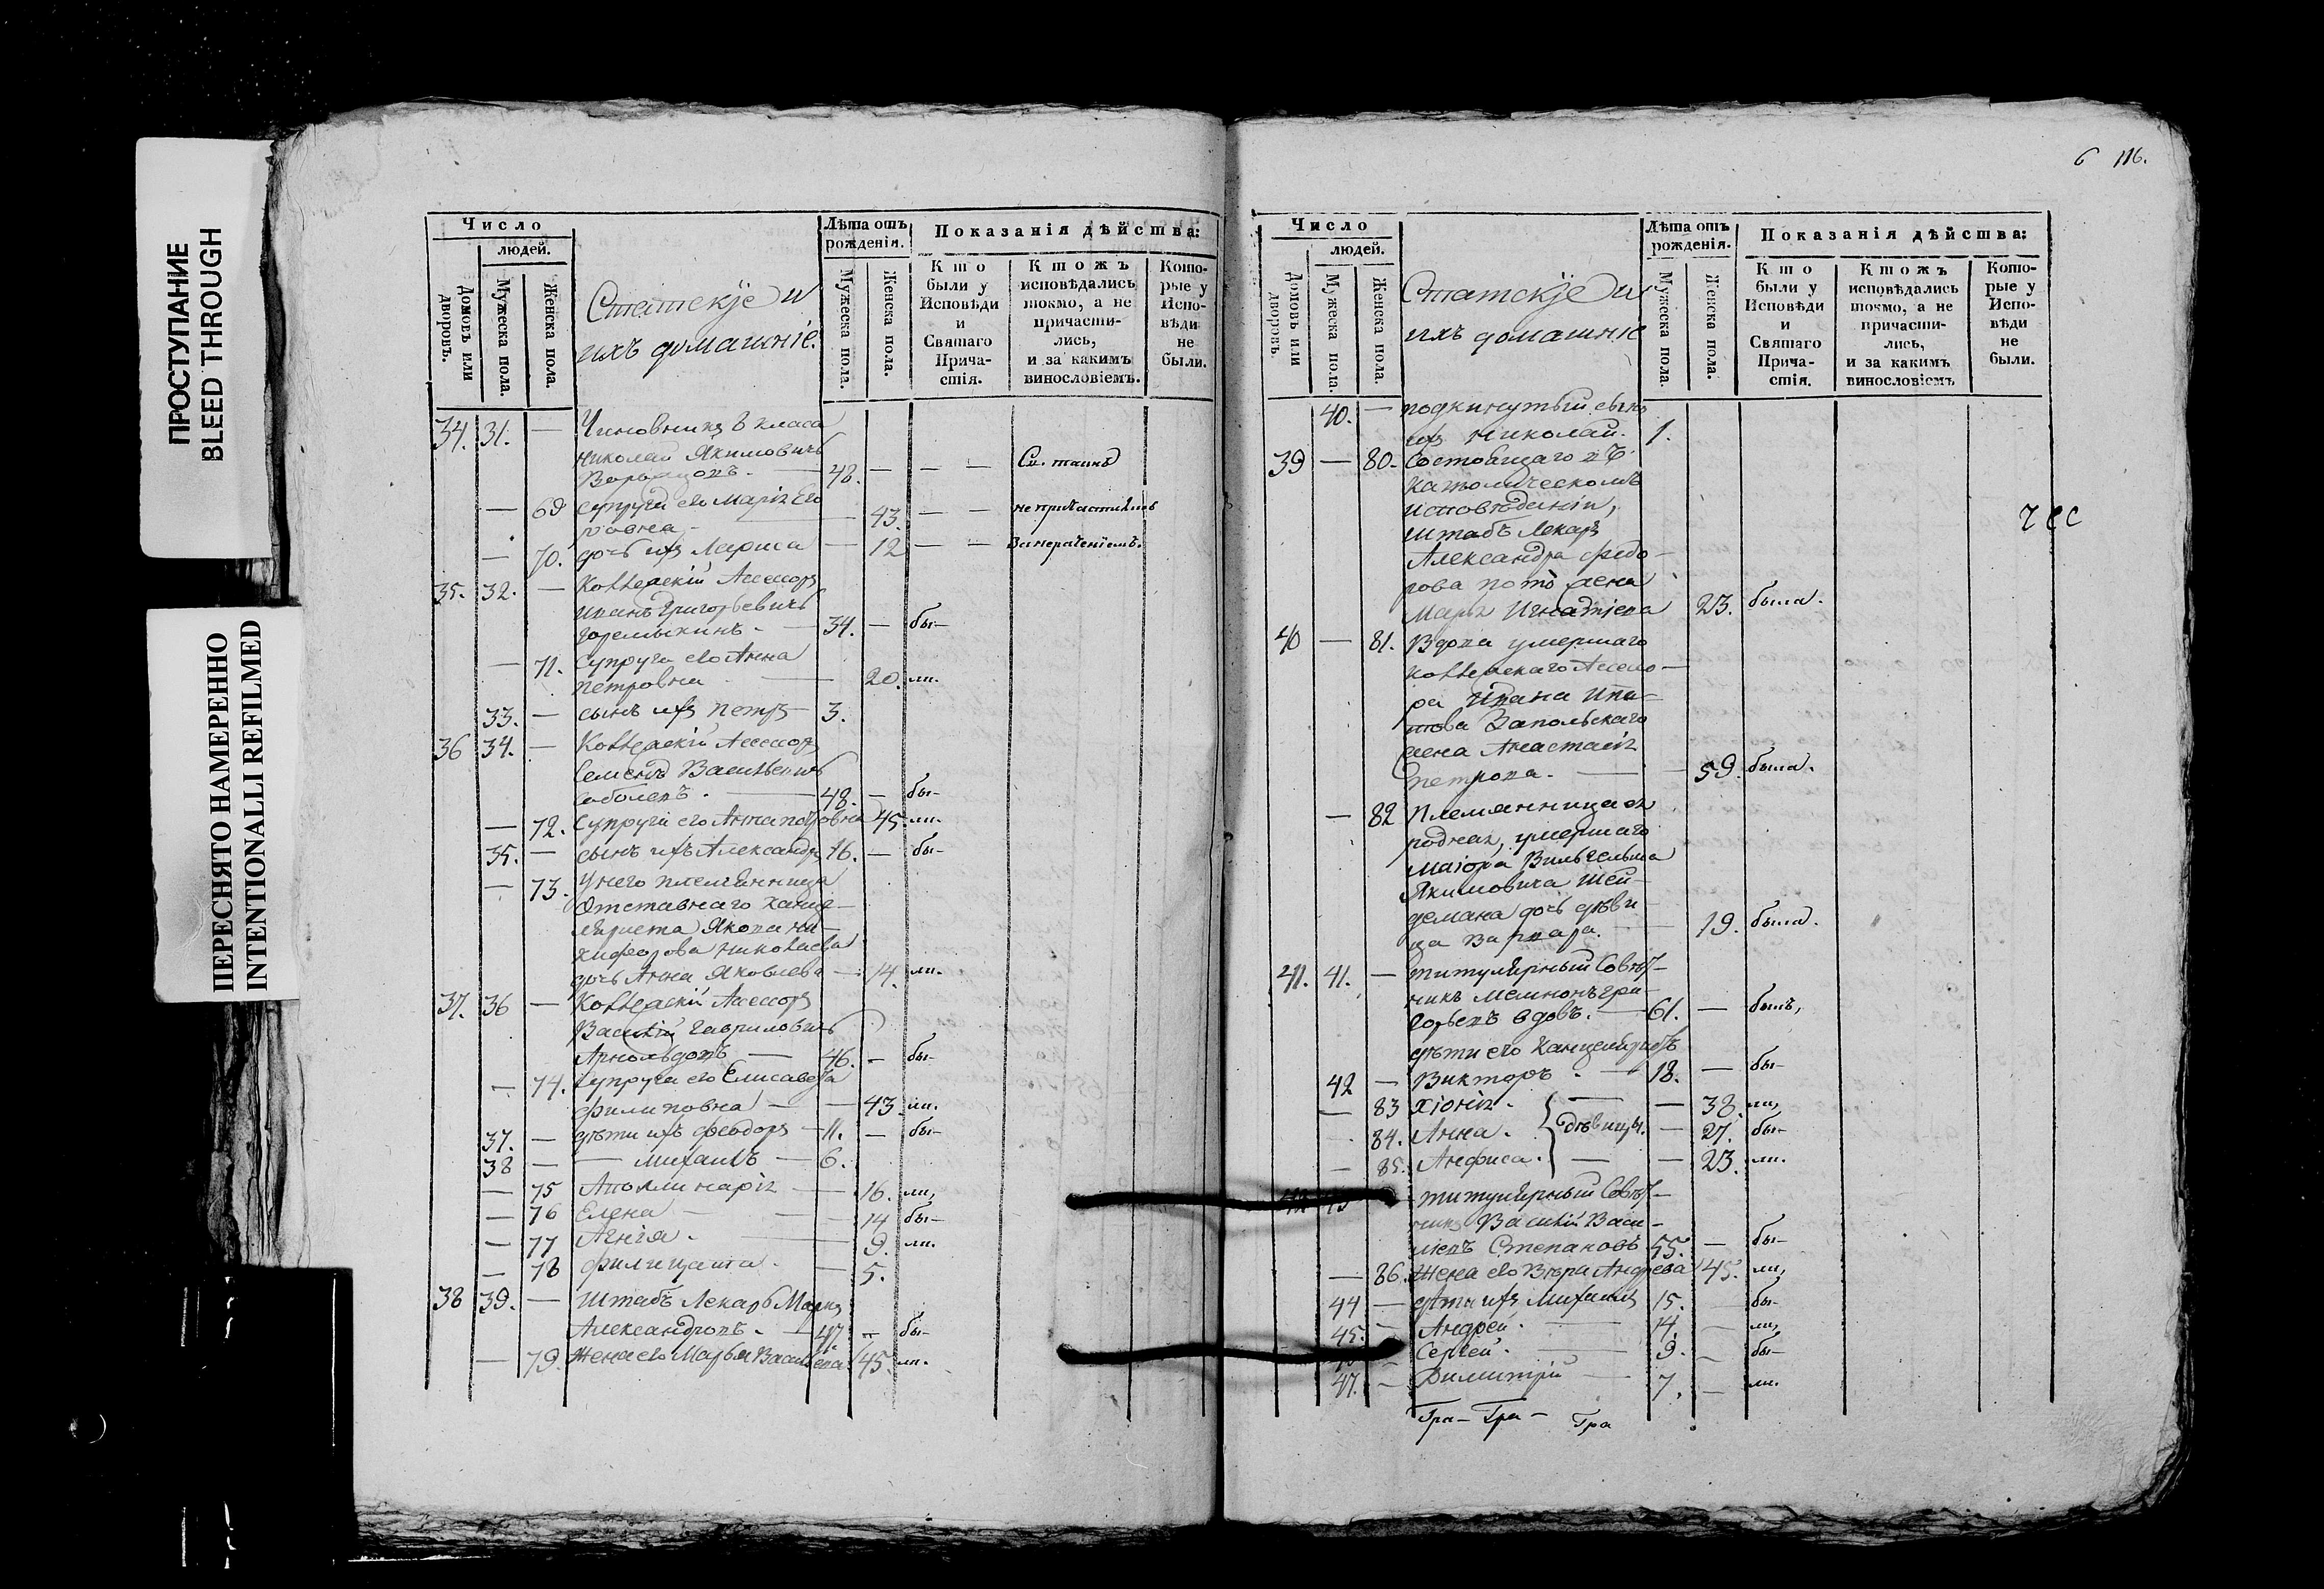 ПРОСТУПАНИЕ
BLEED THROUGH
ПЕРЕСНЯТО НАМЕРЕННО
INTENTIONALLI REFILMED
Число
людей.
Домовъ или дворовъ.
Мужеска пола.
Женска пола.
Статскје и
ихъ домашніе.
Лѣта отъ рожденія.
Мужеска пола.
Женска пола.
Показанія дѣйства:
Кто были у Исповѣди и Святаго Прича-стія.
Ктожъ исповѣдались токмо, а не причасти-лись, и за какимъ винословіемъ.
Кото-рые у Испо-вѣди не были.
34. 31. — Чиновникъ 8 класа
Николай Якимовичъ
48. — — —
— 69 супруга его Марія Его
ровна — — 43. — — не причастились
— 70. дочь ихъ Лариса — 12 — — За нераченіемъ.
35. 32. — Коллежскій Ассесоръ
Иванъ Григорьевичъ
Горемыкинъ. — 34. — бы—
— 71. Супруга его Анна
Петровна — 20. ли.
33. — сынъ ихъ Петръ — 3.
36 34. — Коллежскій Ассесоръ
Семенъ Васильевичъ
Соболевъ. — 48. — бы—
— 72. Супруга его Анна Петровна 45. ли.
35. — сынъ ихъ Александръ 16. — бы—
— 73. У него племянница
Отставнаго канце—
ляриста Якова Ни—
кифорова Николаева
дочь Анна Яковлева — 14. ли.
37. 36 — Коллежскій Ассесоръ
Василій Гавриловичъ
Арнольдовъ — 46. — бы—
— 74. Супруга его Елисавета
Филиповна — — 43. ли.
37. — дѣти ихъ Феодоръ — 11. — бы—
38 — — Михаилъ — 6.
— 75 Аполлинарія — 16. ли,
— 76 Елена — — 14 бы—
— 77 Агнія. — 9. ли.
— 78 Филицата. — 5.
38 39. — Штабъ Лекарь Марко
Александровъ. — 47. — бы—
— 79. Жена его Марья Васильева 45. ли.
6 116.
Число
людей.
Домовъ или дворовъ.
Мужеска пола.
Женска пола.
Статскје и
ихъ домашніе
Лѣта отъ рожденія.
Мужеска пола.
Женска пола.
Показанія дѣйства:
Кто были у Исповѣди и Святаго Прича-стія.
Ктожъ исповѣдались токмо, а не причасти-лись, и за какимъ винословіемъ
Кото-рые у Испо-вѣди не были.
40. — подкинутый сынъ
ихъ Николай. 1.
39 — 80. Состоящаго въ
Католическомъ
исповѣданіи,
Штабъ Лекаря
Александра Федо—
рова жена
Марья Игнатьева 23. была.
40 — 81. Вдова умершаго
Коллежскаго Ассесо—
ра Ивана Ипа—
това Запольскаго
жена Анастасія
Петрова. — 59. была.
— 82 Племянница ея
родная, умершаго
Маіора Вильгельма
Якимовича Шей—
демана дочь дѣви—
ца Варвара. — 19. была.
41. 41. — Титулярный Совѣт—
никъ Мемнонъ Гри—
горьевъ вдовъ. — 61. — былъ,
дѣти его Канцеляристъ
42 — Викторъ. — 18. — бы—
— 83 Хіонія. — — 38. ли,
84. Анна. дѣвицы. — 27. бы—
— 85. Анфиса. — — 23. ли.
Титулярный Совѣт—
никъ Василій Васи—
льевъ Степановъ 55. — бы—
— 86. Жена его Вѣра Андреева 45. ли,
44 — дѣти ихъ Михаилъ 15. бы—
45. — Андрей. — 14. — ли,
— Сергей. — 9. — бы—
47. — Димитрій — 7. — ли.
Гра— Гра— Гра